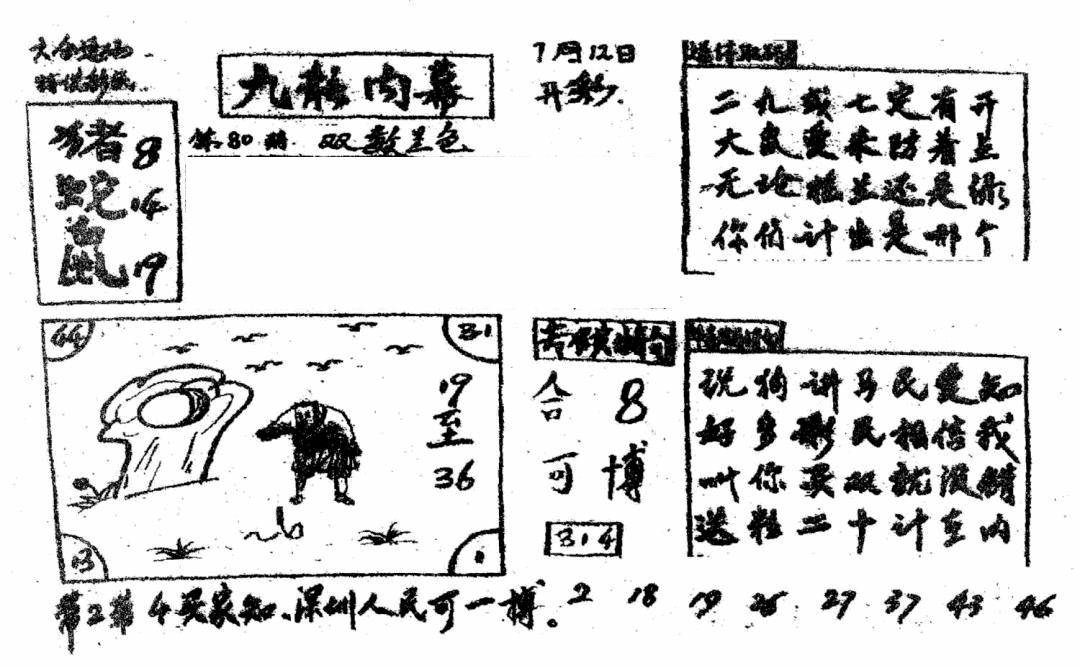 六合通码
特供彩民
猪8
蛇14
鼠19
九龍内幕
第80期 双数兰色
7月12日
开彩.
二九或七定有开
大良爱来防着兰
无论樣兰还是绿
你估计出是那个
44
31
19
至
36
13
1
合8
可博
314
说狗讲马民爱知
好多彩民相信我
叫你买双就没错
送粒二十计在内
第2第4买家知、深圳人民可一搏。
2 18 19 26 27 37 43 46